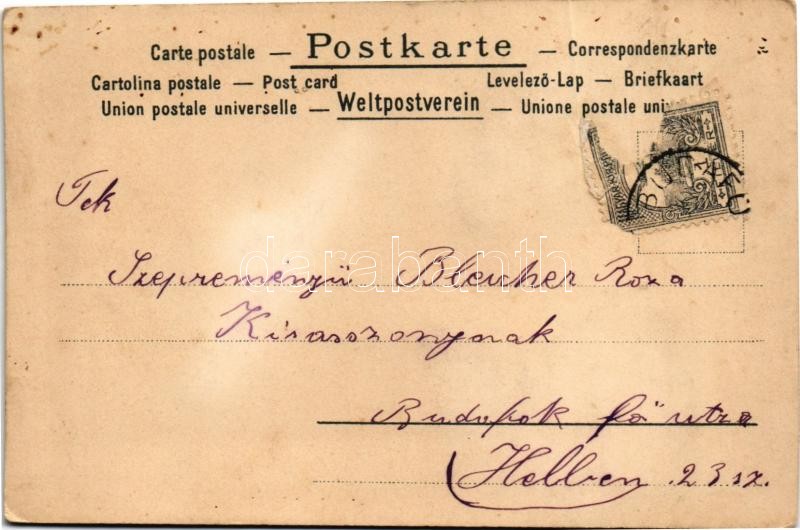 Carte postale — Postkarte — Correspondenzkarte
Cartolina postale — Post card Levelező-Lap — Briefkaart
Union postale universelle — Weltpostverein — Unione postale uni
BUDAFO
Tek
Szepreményü Bleuher Roza
Kisasszonynak
Budafok fö utza
Helben 23 sz.
darabanth